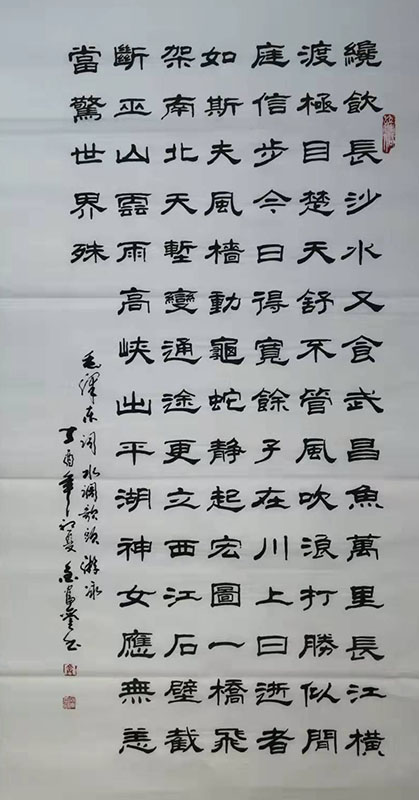 纔飲長沙水又食武昌魚萬里長江橫
渡極目楚天舒不管風吹浪打勝似閒
庭信步今日得寬餘子在川上曰逝者
如斯夫風檣動龜蛇靜起宏圖一橋飛
架南北天塹變通途更立西江石壁截
斷巫山雲雨高峽出平湖神女應無恙
當驚世界殊
毛澤东词水调歌頭游泳
丁酉年初夏